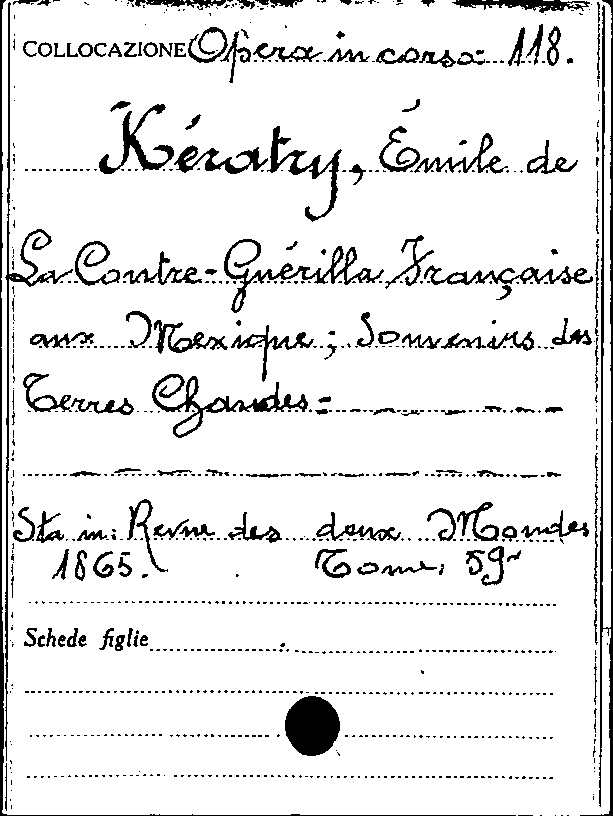 COLLOCAZIONE Opera in corso: 118.
Kératry, Émile de
La Contre-Guérilla Française
aux Mexique; Souvenirs des
Terres Chaudes =
Sta in: Revue des deux Mondes
1865. Tome, 59
Schede figlie